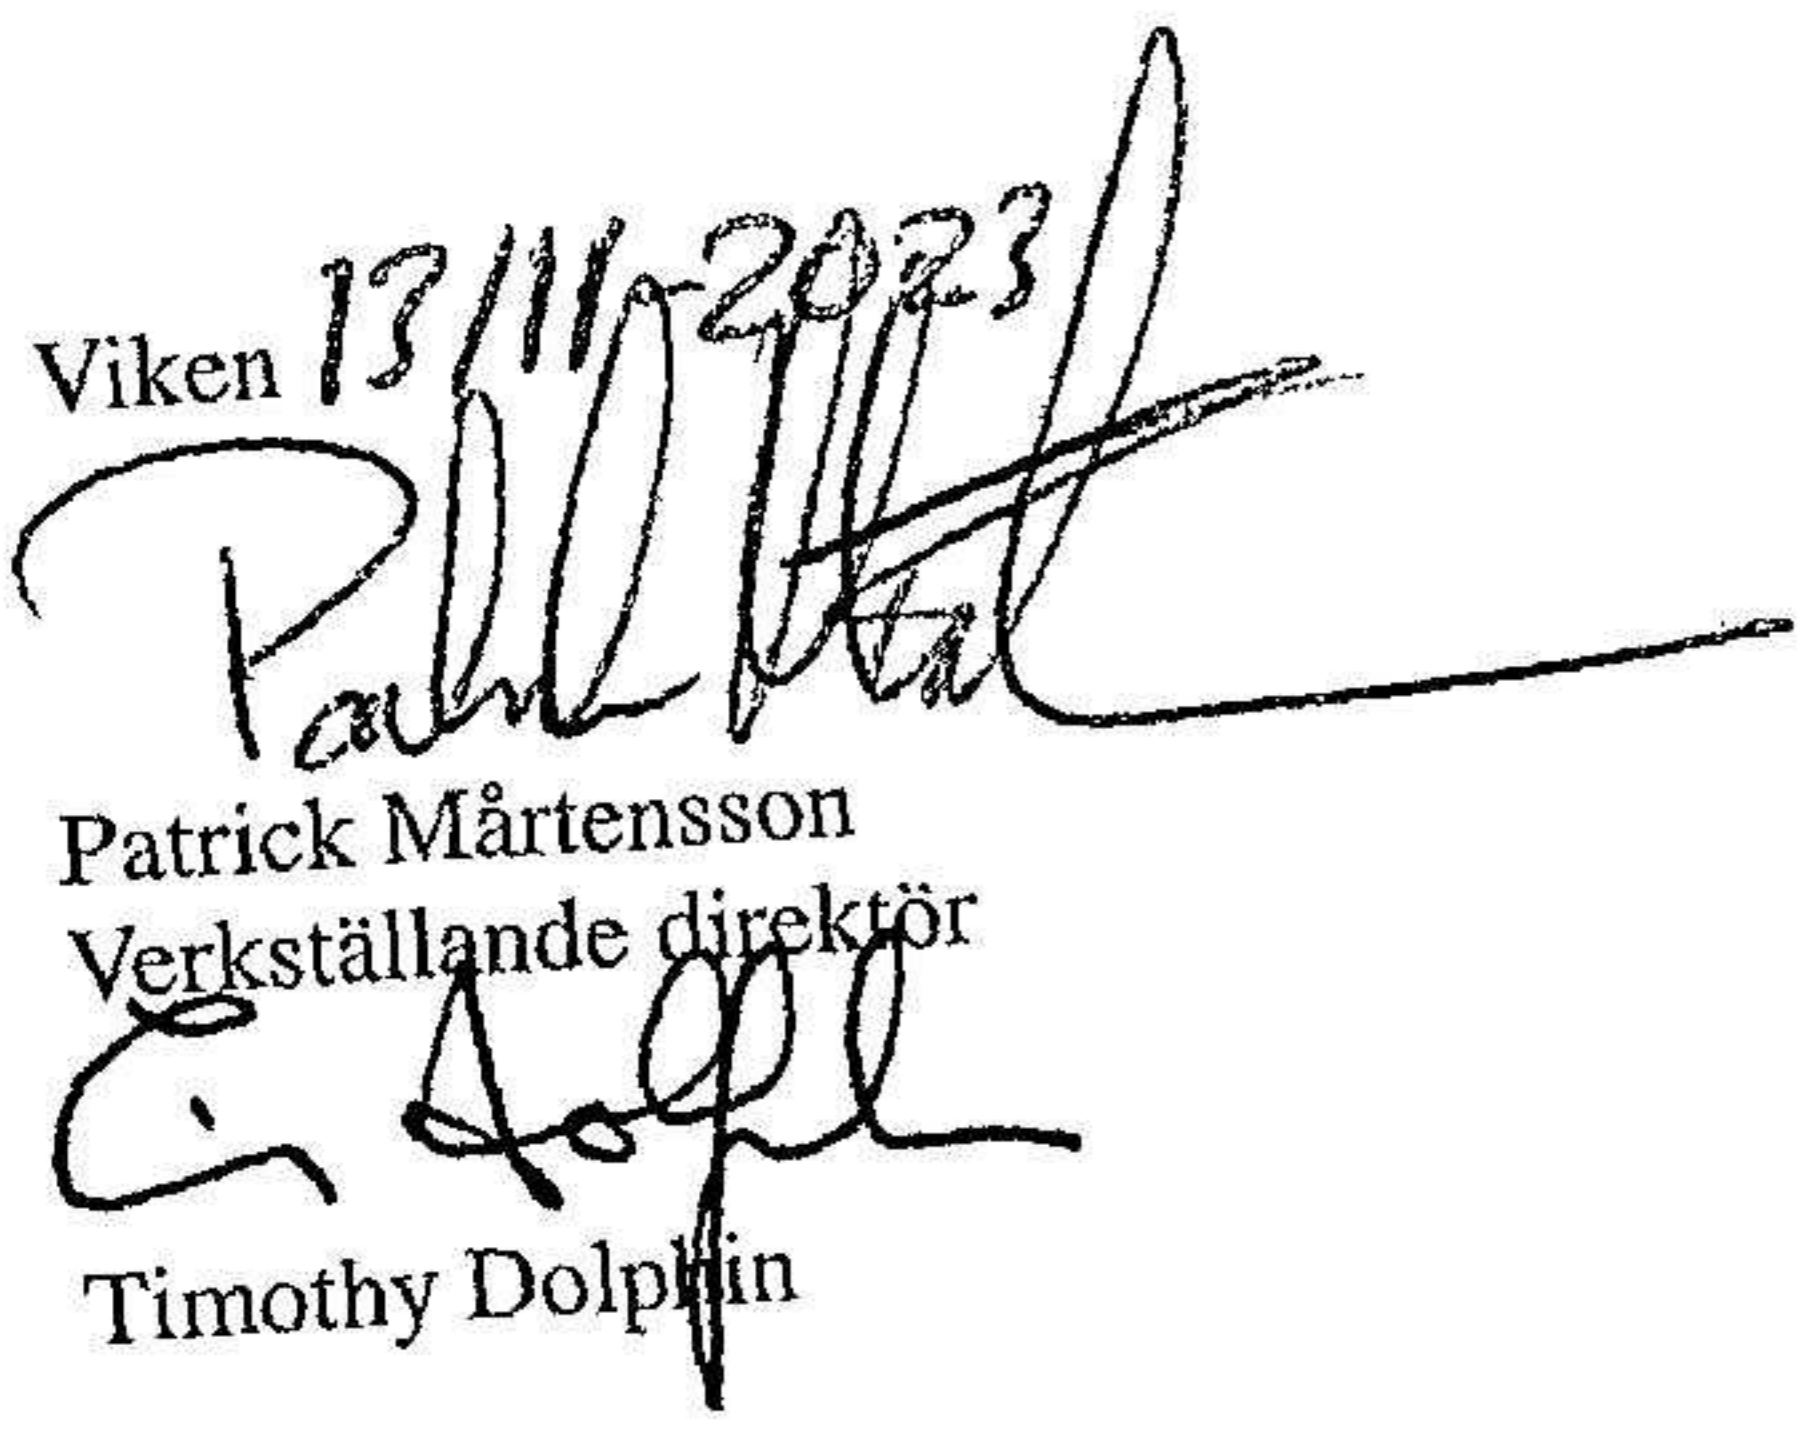 Viken 13/11-2023
Patrick Mårtensson
Verkställande direktör
Timothy Dolphin